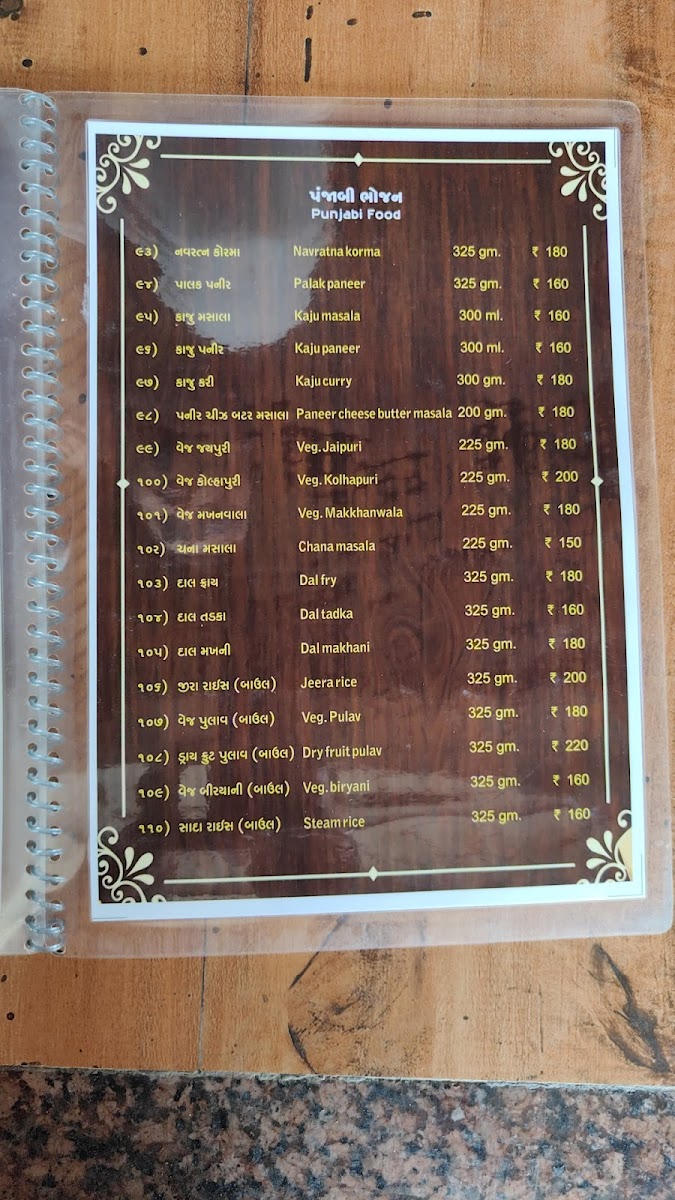 પંજાબી ભોજન
Punjabi Food
૯૩) નવરત્ન કોરમા Navratna korma 325 gm. ₹ 180
૯૪) પાલક પનીર Palak paneer 325 gm. ₹ 160
૯૫) કાજુ મસાલા Kaju masala 300 ml. ₹ 160
૯૬) કાજુ પનીર Kaju paneer 300 ml. ₹ 160
૯૭) કાજુ કરી Kaju curry 300 gm. ₹ 180
૯૮) પનીર ચીઝ બટર મસાલા Paneer cheese butter masala 200 gm. ₹ 180
૯૯) વેજ જયપુરી Veg. Jaipuri 225 gm. ₹ 180
૧૦૦) વેજ કોલ્હાપુરી Veg. Kolhapuri 225 gm. ₹ 200
૧૦૧) વેજ મખનવાલા Veg. Makkhanwala 225 gm. ₹ 180
૧૦૨) ચના મસાલા Chana masala 225 gm. ₹ 150
૧૦૩) દાલ ફ્રાય Dal fry 325 gm. ₹ 180
૧૦૪) દાલ તડકા Dal tadka 325 gm. ₹ 160
૧૦૫) દાલ મખની Dal makhani 325 gm. ₹ 180
૧૦૬) જીરા રાઈસ (બાઉલ) Jeera rice 325 gm. ₹ 200
૧૦૭) વેજ પુલાવ (બાઉલ) Veg. Pulav 325 gm. ₹ 180
૧૦૮) ડ્રાય ફ્રુટ પુલાવ (બાઉલ) Dry fruit pulav 325 gm. ₹ 220
૧૦૯) વેજ બીરયાની (બાઉલ) Veg. biryani 325 gm. ₹ 160
૧૧૦) સાદા રાઈસ (બાઉલ) Steam rice 325 gm. ₹ 160